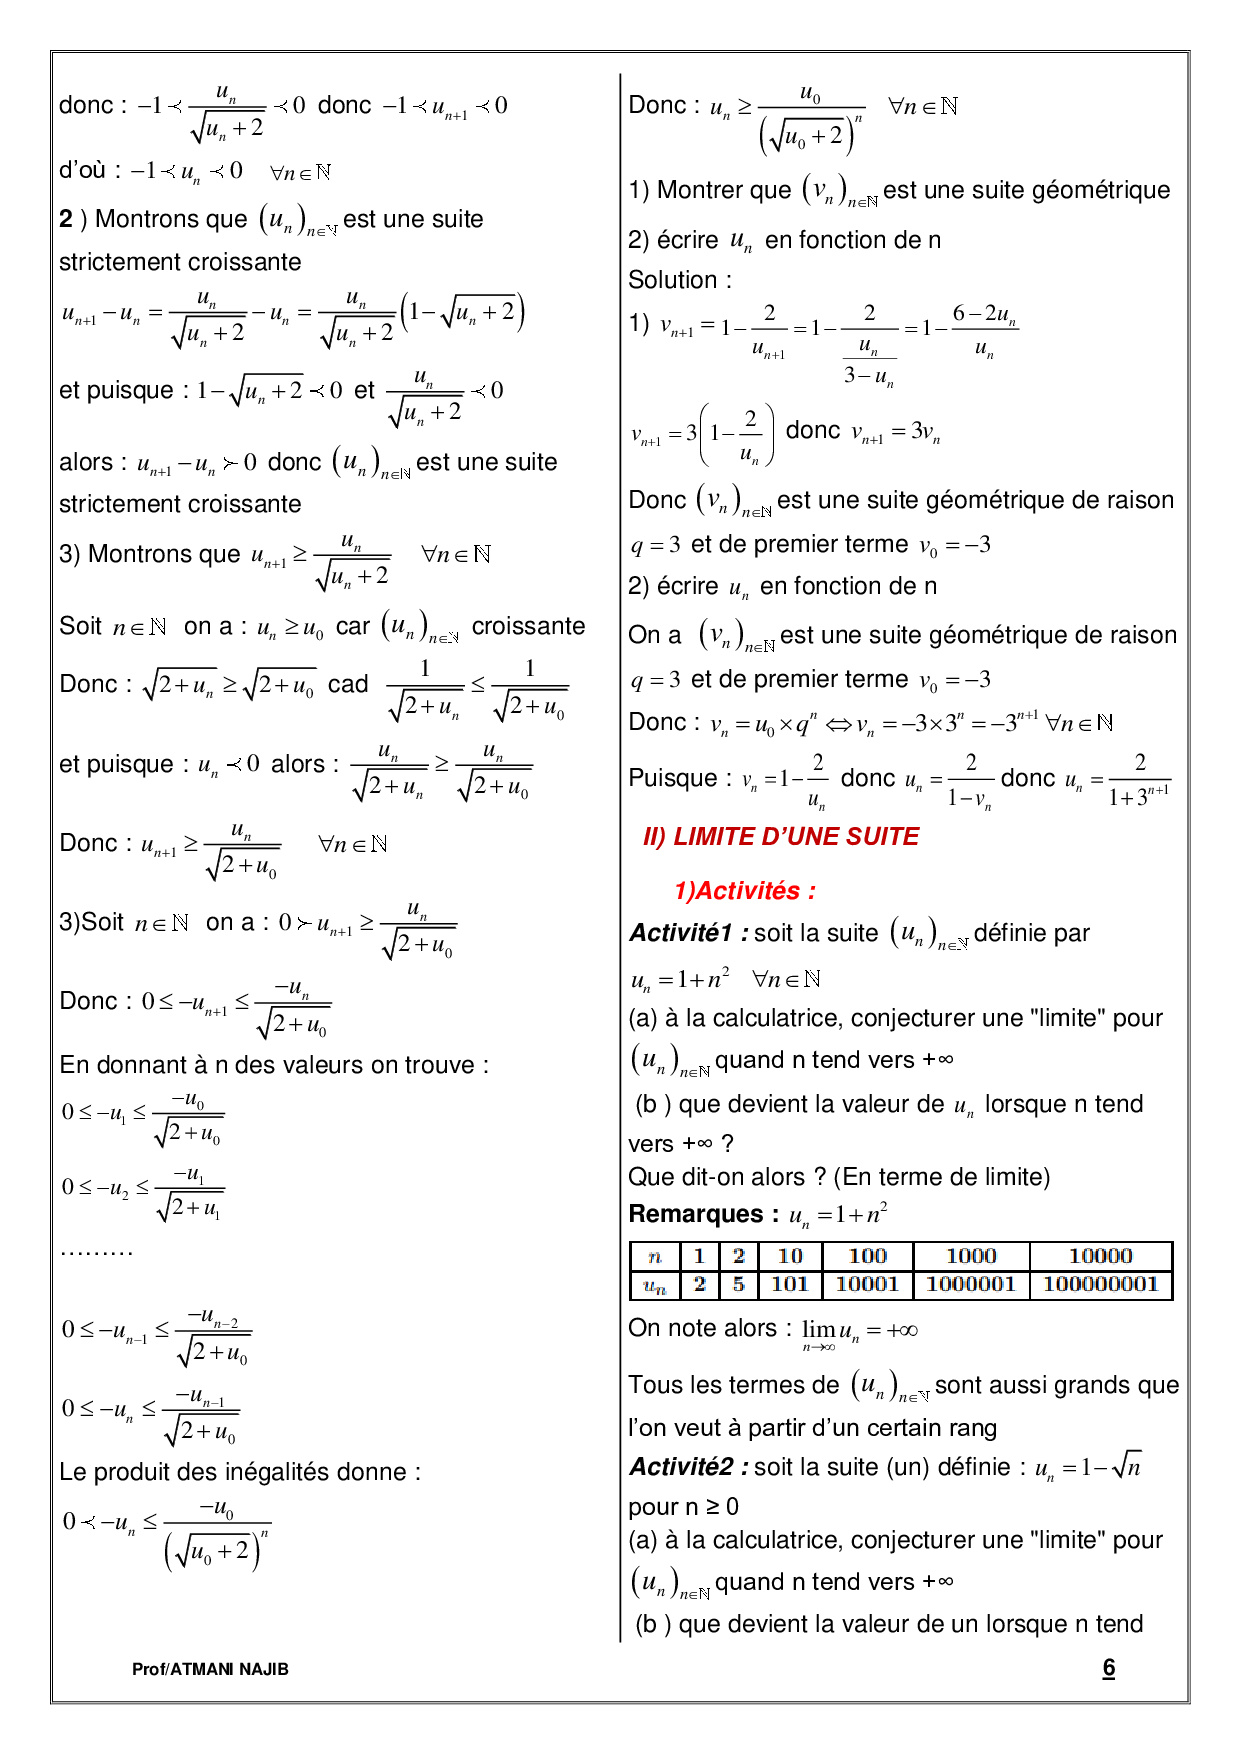 donc : −1 ≺ u_n / √(u_n + 2) ≺ 0 donc −1 ≺ u_{n+1} ≺ 0
d'où : −1 ≺ u_n ≺ 0 ∀n ∈ ℕ
2 ) Montrons que (u_n)_{n∈ℕ} est une suite
strictement croissante
u_{n+1} − u_n = u_n / √(u_n + 2) − u_n = u_n / √(u_n + 2) (1 − √(u_n + 2))
et puisque : 1 − √(u_n + 2) ≺ 0 et u_n / √(u_n + 2) ≺ 0
alors : u_{n+1} − u_n ≻ 0 donc (u_n)_{n∈ℕ} est une suite
strictement croissante
3) Montrons que u_{n+1} ≥ u_n / √(u_n + 2) ∀n ∈ ℕ
Soit n ∈ ℕ on a : u_n ≥ u_0 car (u_n)_{n∈ℕ} croissante
Donc : √(2 + u_n) ≥ √(2 + u_0) cad 1 / √(2 + u_n) ≤ 1 / √(2 + u_0)
et puisque : u_n ≺ 0 alors : u_n / √(2 + u_n) ≥ u_n / √(2 + u_0)
Donc : u_{n+1} ≥ u_n / √(2 + u_0) ∀n ∈ ℕ
3)Soit n ∈ ℕ on a : 0 ≻ u_{n+1} ≥ u_n / √(2 + u_0)
Donc : 0 ≤ −u_{n+1} ≤ −u_n / √(2 + u_0)
En donnant à n des valeurs on trouve :
0 ≤ −u_1 ≤ −u_0 / √(2 + u_0)
0 ≤ −u_2 ≤ −u_1 / √(2 + u_1)
………
0 ≤ −u_{n−1} ≤ −u_{n−2} / √(2 + u_0)
0 ≤ −u_n ≤ −u_{n−1} / √(2 + u_0)
Le produit des inégalités donne :
0 ≺ −u_n ≤ −u_0 / (√(u_0 + 2))^n
Donc : u_n ≥ u_0 / (√(u_0 + 2))^n ∀n ∈ ℕ
1) Montrer que (v_n)_{n∈ℕ} est une suite géométrique
2) écrire u_n en fonction de n
Solution :
1) v_{n+1} = 1 − 2 / u_{n+1} = 1 − 2 / (u_n / (3 − u_n)) = 1 − (6 − 2u_n) / u_n
v_{n+1} = 3(1 − 2 / u_n) donc v_{n+1} = 3v_n
Donc (v_n)_{n∈ℕ} est une suite géométrique de raison
q = 3 et de premier terme v_0 = −3
2) écrire u_n en fonction de n
On a (v_n)_{n∈ℕ} est une suite géométrique de raison
q = 3 et de premier terme v_0 = −3
Donc : v_n = u_0 × q^n ⇔ v_n = −3 × 3^n = −3^{n+1} ∀n ∈ ℕ
Puisque : v_n = 1 − 2 / u_n donc u_n = 2 / (1 − v_n) donc u_n = 2 / (1 + 3^{n+1})
II) LIMITE D'UNE SUITE
1)Activités :
Activité1 : soit la suite (u_n)_{n∈ℕ} définie par
u_n = 1 + n² ∀n ∈ ℕ
(a) à la calculatrice, conjecturer une "limite" pour
(u_n)_{n∈ℕ} quand n tend vers +∞
(b ) que devient la valeur de u_n lorsque n tend
vers +∞ ?
Que dit-on alors ? (En terme de limite)
Remarques : u_n = 1 + n²
n 1 2 10 100 1000 10000
u_n 2 5 101 10001 1000001 100000001
On note alors : lim_{n→∞} u_n = +∞
Tous les termes de (u_n)_{n∈ℕ} sont aussi grands que
l'on veut à partir d'un certain rang
Activité2 : soit la suite (un) définie : u_n = 1 − √n
pour n ≥ 0
(a) à la calculatrice, conjecturer une "limite" pour
(u_n)_{n∈ℕ} quand n tend vers +∞
(b ) que devient la valeur de un lorsque n tend
Prof/ATMANI NAJIB
6